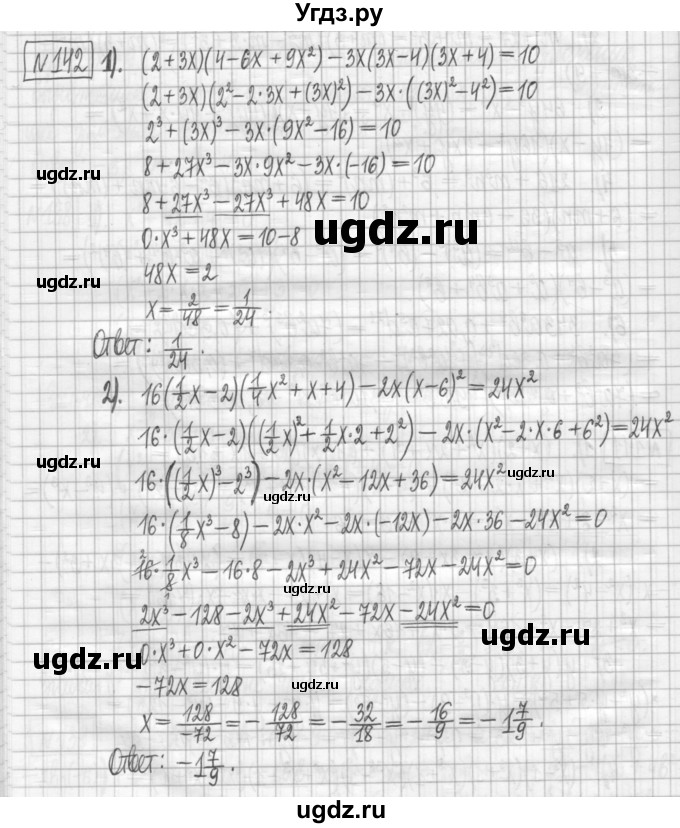 Угдз.ру
№142 1). (2+3x)(4-6x+9x²)-3x(3x-4)(3x+4)=10
(2+3x)(2²-2·3x+(3x)²)-3x·((3x)²-4²)=10
2³+(3x)³-3x·(9x²-16)=10
ugdz.ru ugdz.ru
8+27x³-3x·9x²-3x·(-16)=10
8+27x³-27x³+48x=10
ugdz.ru
0·x³+48x=10-8
48x=2
ugdz.ru
x=2/48=1/24.
Ответ: 1/24.
ugdz.ru
2). 16(1/2x-2)(1/4x²+x+4)-2x(x-6)²=24x²
16·(1/2x-2)((1/2x)²+1/2x·2+2²)-2x·(x²-2·x·6+6²)=24x²
ugdz.ru
16·((1/2x)³-2³)-2x·(x²-12x+36)=24x²
ugdz.ru
ugdz.ru
16·(1/8x³-8)-2x·x²-2x·(-12x)-2x·36-24x²=0
16·1/8x³-16·8-2x³+24x²-72x-24x²=0
ugdz.ru
2x³-128-2x³+24x²-72x-24x²=0
ugdz.ru
0·x³+0·x²-72x=128
ugdz.ru
-72x=128
ugdz.ru
x=128/-72=-128/72=-32/18=-16/9=-1 7/9.
Ответ: -1 7/9.
ugdz.ru
ugdz.ru